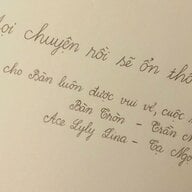 ọi chuyện rồi sẽ ổn thô
cho Bàn luôn được vui vẻ, cuộc
Bàn Tròn - Trần
Ace Lyly Lina - Tạ Ngọ